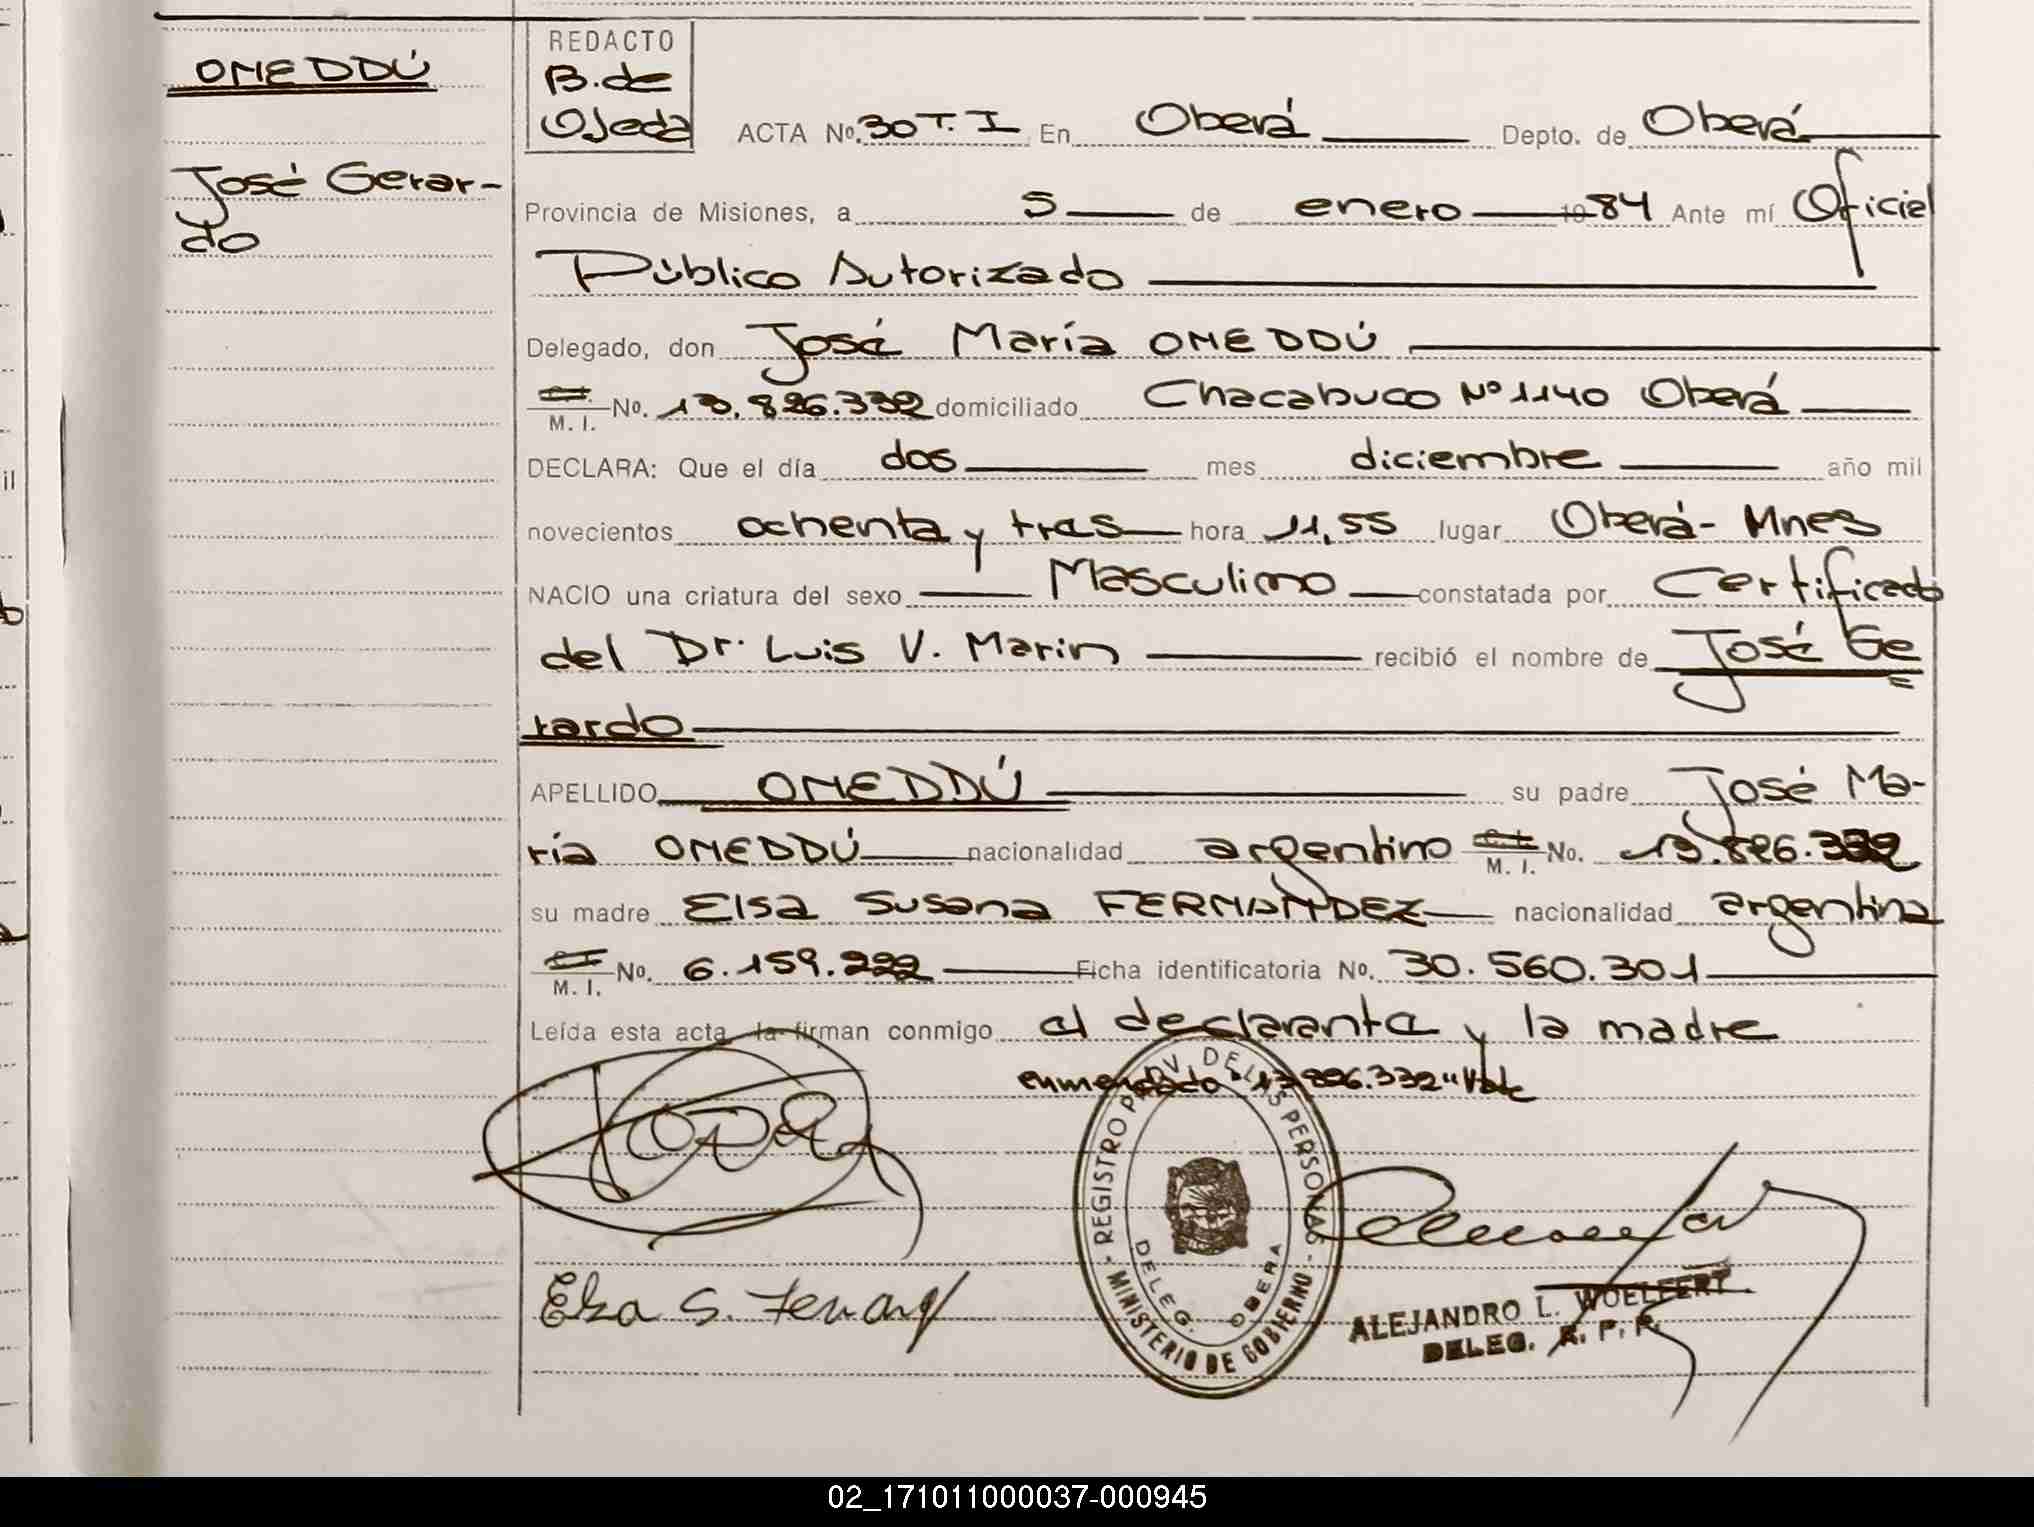 OMEDDÚ
José Gerar-
do
REDACTO
B. de
Ojeda
ACTA No. 30 T. I En Oberá Depto. de Oberá
Provincia de Misiones, a 5 de enero 1984 Ante mí Oficial
Público Autorizado
Delegado, don José María OMEDDÚ
C. I.
M. I. No. 13.826.332 domiciliado Chacabuco Nº 1140 Oberá
DECLARA: Que el día dos mes diciembre año mil
novecientos ochenta y tres hora 11,55 lugar Oberá - Mnes
NACIO una criatura del sexo Masculino constatada por Certificado
del Dr. Luis V. Marin recibió el nombre de José Ge
rardo
APELLIDO OMEDDÚ su padre José Ma-
ría OMEDDÚ nacionalidad argentino C. I.
M. I. No. 13.826.332
su madre Elsa Susana FERNANDEZ nacionalidad argentina
C. I.
M. I. No. 6.159.222 Ficha identificatoria No. 30.560.301
Leída esta acta, la firman conmigo el declarante y la madre
enmendado "13.826.332" Vale
REGISTRO PROV. DE LAS PERSONAS
DELEG. OBERA
MINISTERIO DE GOBIERNO
Elsa S. Fernandez
ALEJANDRO L. WOELFERT
DELEG. R. P. P.
02_171011000037-000945